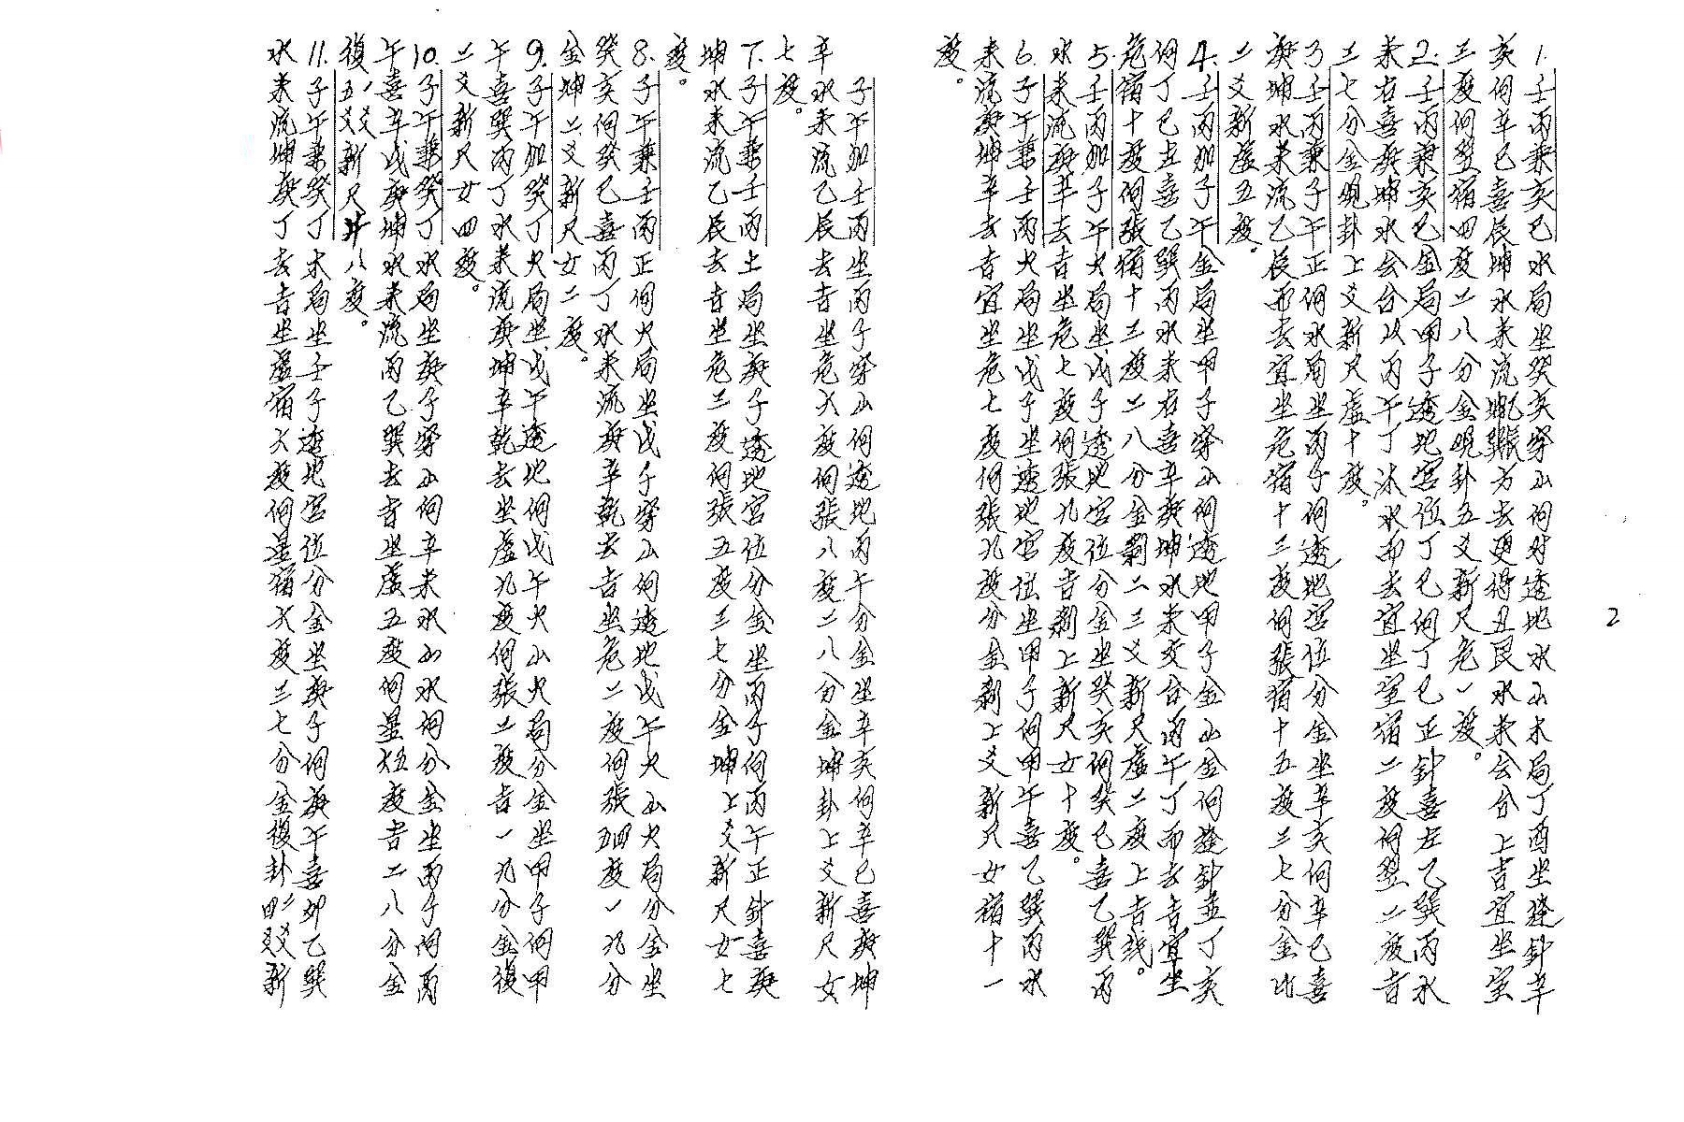 1. 壬丙兼亥巳水局坐癸亥穿山向对透地水山木局丁酉坐逢針辛
亥向辛巳喜辰坤水来流乾巽方去更得丑艮水来会合上吉宜坐室
三度向翌宿四度二八分金观卦五爻新尺危一度。
2. 壬丙兼亥巳金局甲子透地宮位丁巳向丁巳正針喜左乙巽丙水
来右喜庚坤水会合从丙午丁沐水而去宜坐室宿二度向翌二度吉
三七分金观卦上爻新尺虚十度。
3. 壬丙兼子午正向水局坐丙子向透地宮位分金坐辛亥向辛巳喜
庚坤水来流乙辰而去宜坐危宿十三度向張宿十五度三七分金比
二爻新虚五度。
4. 壬丙加子午金局坐甲子穿山向透地甲子金山金向逢針並丁亥
向丁巳左喜乙巽丙水来右喜辛庚坤水来交合丙午丁而去吉宜坐
危宿十度向張宿十三度二八分金剥二三爻新尺虚二度上吉线。
5. 壬丙加子午火局坐戊子透地宮位分金坐癸亥向癸巳喜乙巽丙
水来流庚辛去吉坐危七度向張九度吉剥上新尺女十度。
6. 子午兼壬丙火局坐戊子坐透地宮位坐甲子向甲午喜乙巽丙水
来流庚坤辛去吉宜坐危七度向張九度分金剥上爻新尺女宿十一
度。
子午加壬丙坐丙子穿山向透地丙午分金坐辛亥向辛巳喜庚坤
辛水来流乙辰去吉坐危六度向張八度二八分金坤卦上爻新尺女
七度。
7. 子午兼壬丙土局坐庚子透地宮位分金坐丙子向丙午正針喜庚
坤水来流乙辰去吉坐危三度向張五度三七分金坤上爻新尺女七
度。
8. 子午兼壬丙正向火局坐戊子穿山向透地戊午火山火局分金坐
癸亥向癸巳喜丙丁水来流庚辛乾去吉坐危二度向張四度一九分
金坤二爻新尺女二度。
9. 子午加癸丁火局坐戊午透地向戊午火山火局分金坐甲子向甲
午喜巽丙丁水来流庚坤辛乾去坐虚九度向張二度吉一九分金復
二爻新尺女四度。
10. 子午兼癸丁水局坐庚子穿山向辛未水山水向分金坐丙子向丙
午喜辛戌庚坤水来流丙乙巽去吉坐虚五度向星度吉二八分金
復五爻新尺八度。
11. 子午兼癸丁木局坐壬子透地宮位分金坐庚子向庚午喜卯乙巽
水来流坤庚丁去吉坐虚宿六度向星宿六度三七分金復卦二爻新
2